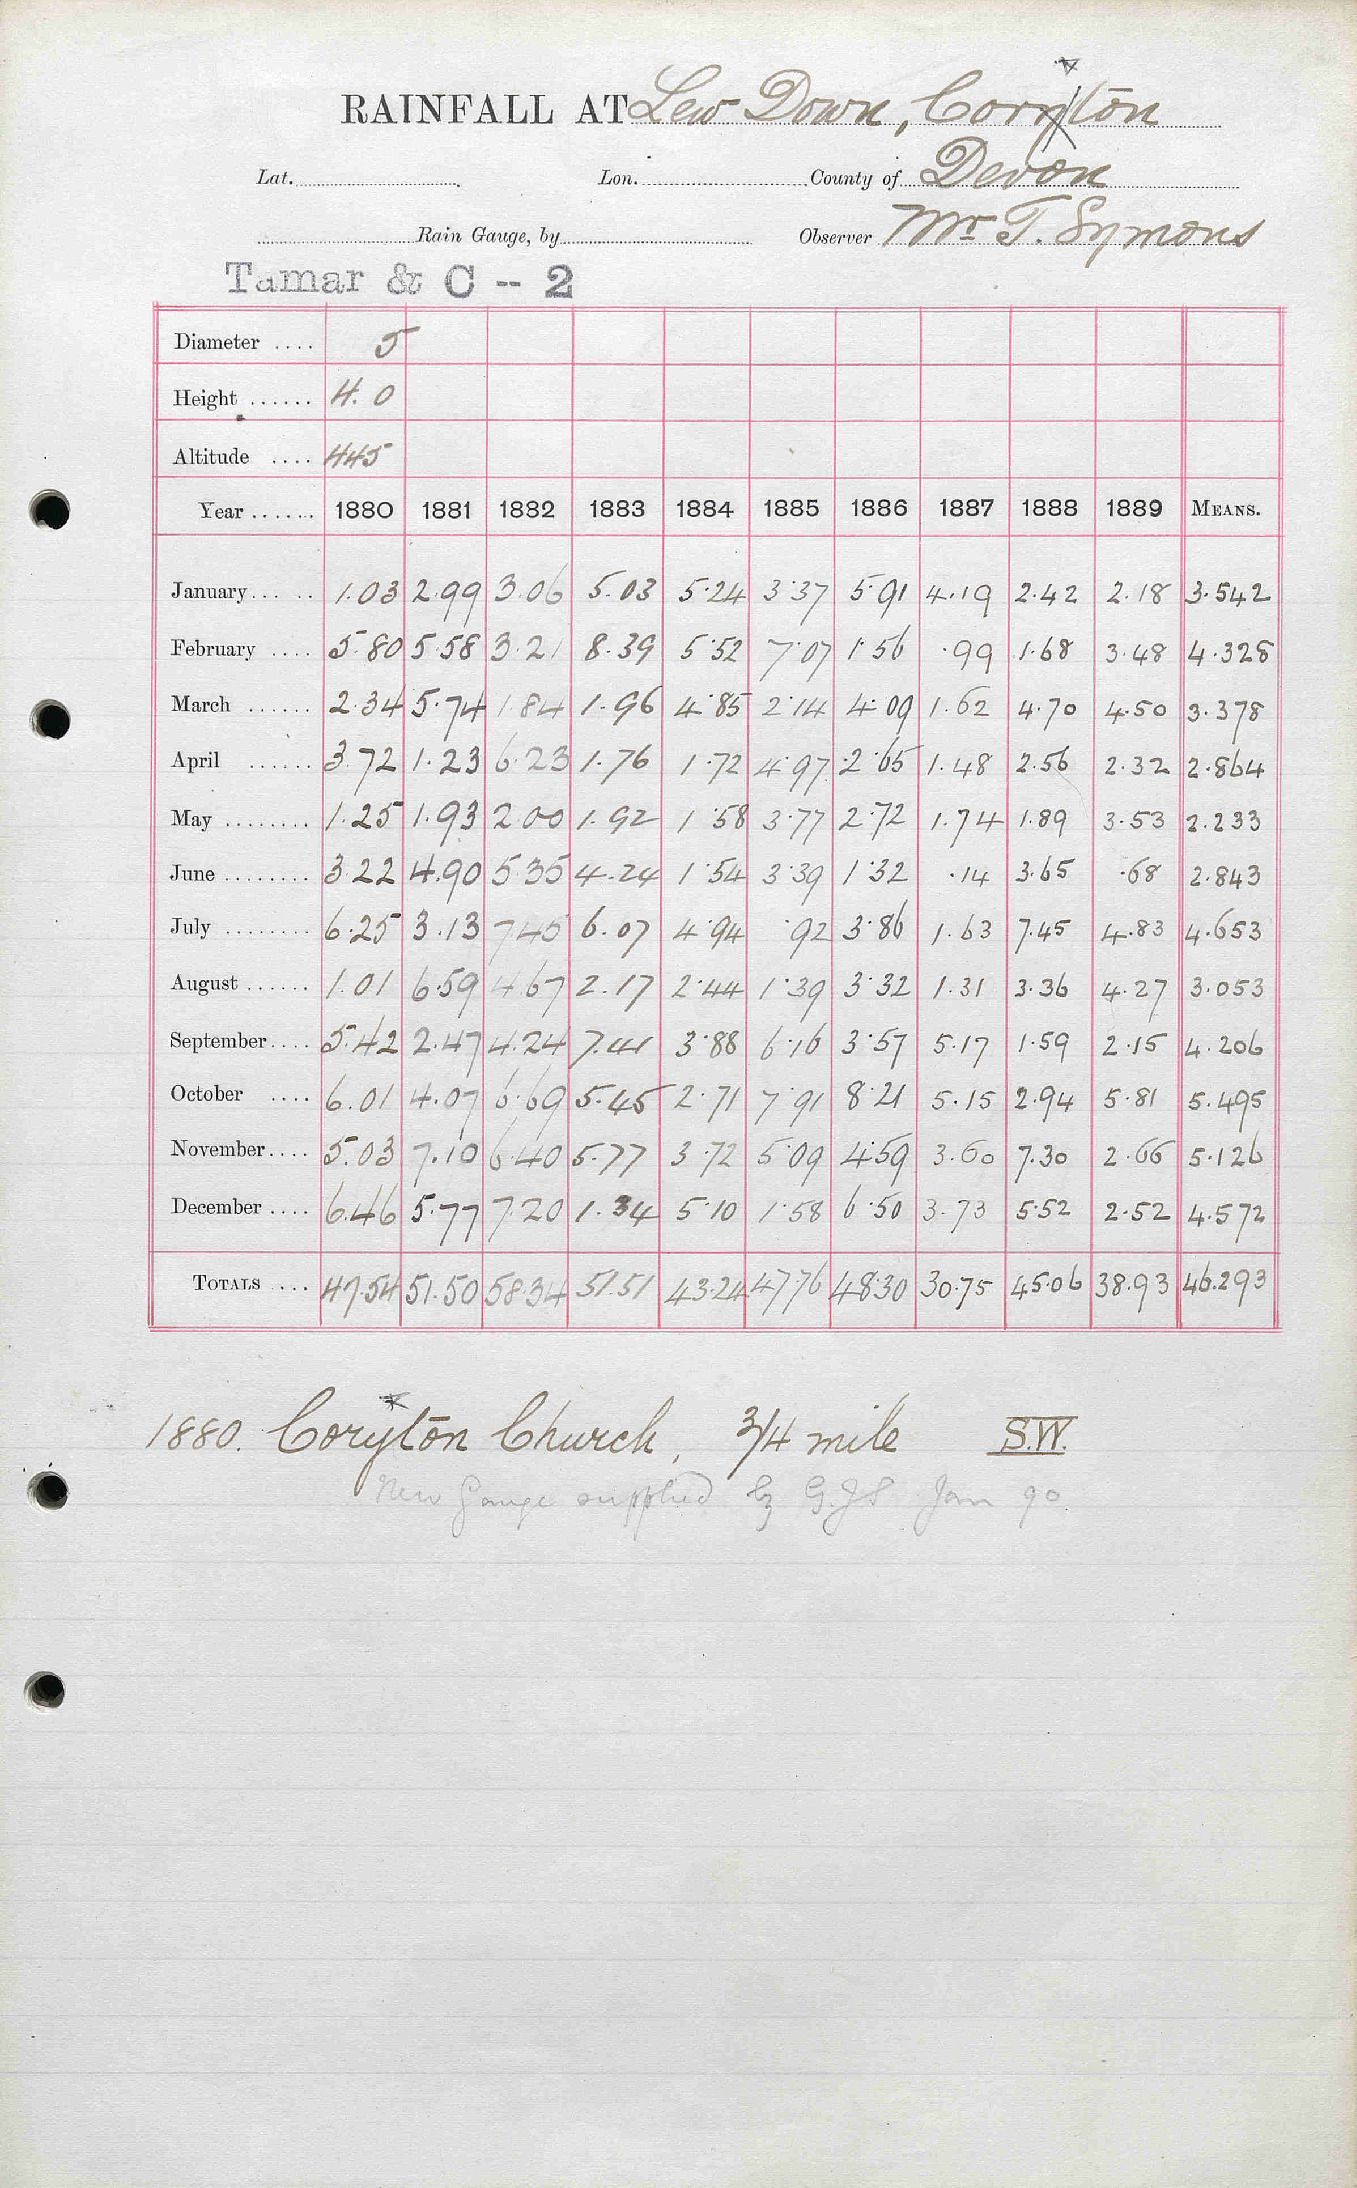 RAINFALL AT Lew Down, Coryton
Lat. Lon. County of Devon
Rain Gauge, by Observer Mr T. Symons
Tamar & C -- 2
Diameter .... 5
Height ...... 4.0
Altitude .... 445
Year ...... 1880 1881 1882 1883 1884 1885 1886 1887 1888 1889 MEANS.
January ..... 1.03 2.99 3.06 5.03 5.24 3.37 5.91 4.19 2.42 2.18 3.542
February .... 5.80 5.58 3.21 8.39 5.52 7.07 1.56 .99 1.68 3.48 4.328
March ...... 2.34 5.74 1.84 1.96 4.85 2.14 4.09 1.62 4.70 4.50 3.378
April ...... 3.72 1.23 6.23 1.76 1.72 4.97 2.65 1.48 2.56 2.32 2.864
May ........ 1.25 1.93 2.00 1.92 1.58 3.77 2.72 1.74 1.89 3.53 2.233
June ........ 3.22 4.90 5.35 4.24 1.54 3.39 1.32 .14 3.65 .68 2.843
July ........ 6.25 3.13 7.45 6.07 4.94 .92 3.86 1.63 7.45 4.83 4.653
August ...... 1.01 6.59 4.67 2.17 2.44 1.39 3.32 1.31 3.36 4.27 3.053
September .... 5.42 2.47 4.24 7.41 3.88 6.16 3.57 5.17 1.59 2.15 4.206
October .... 6.01 4.07 6.69 5.45 2.71 7.91 8.21 5.15 2.94 5.81 5.495
November .... 5.03 7.10 6.40 5.77 3.72 5.09 4.59 3.60 7.30 2.66 5.126
December .... 6.46 5.77 7.20 1.34 5.10 1.58 6.50 3.73 5.52 2.52 4.572
TOTALS .... 47.54 51.50 58.34 51.51 43.24 47.76 48.30 30.75 45.06 38.93 46.293
1880. Coryton Church, 3/4 mile S.W.
New Gauge supplied by G.J.S. Jan 90